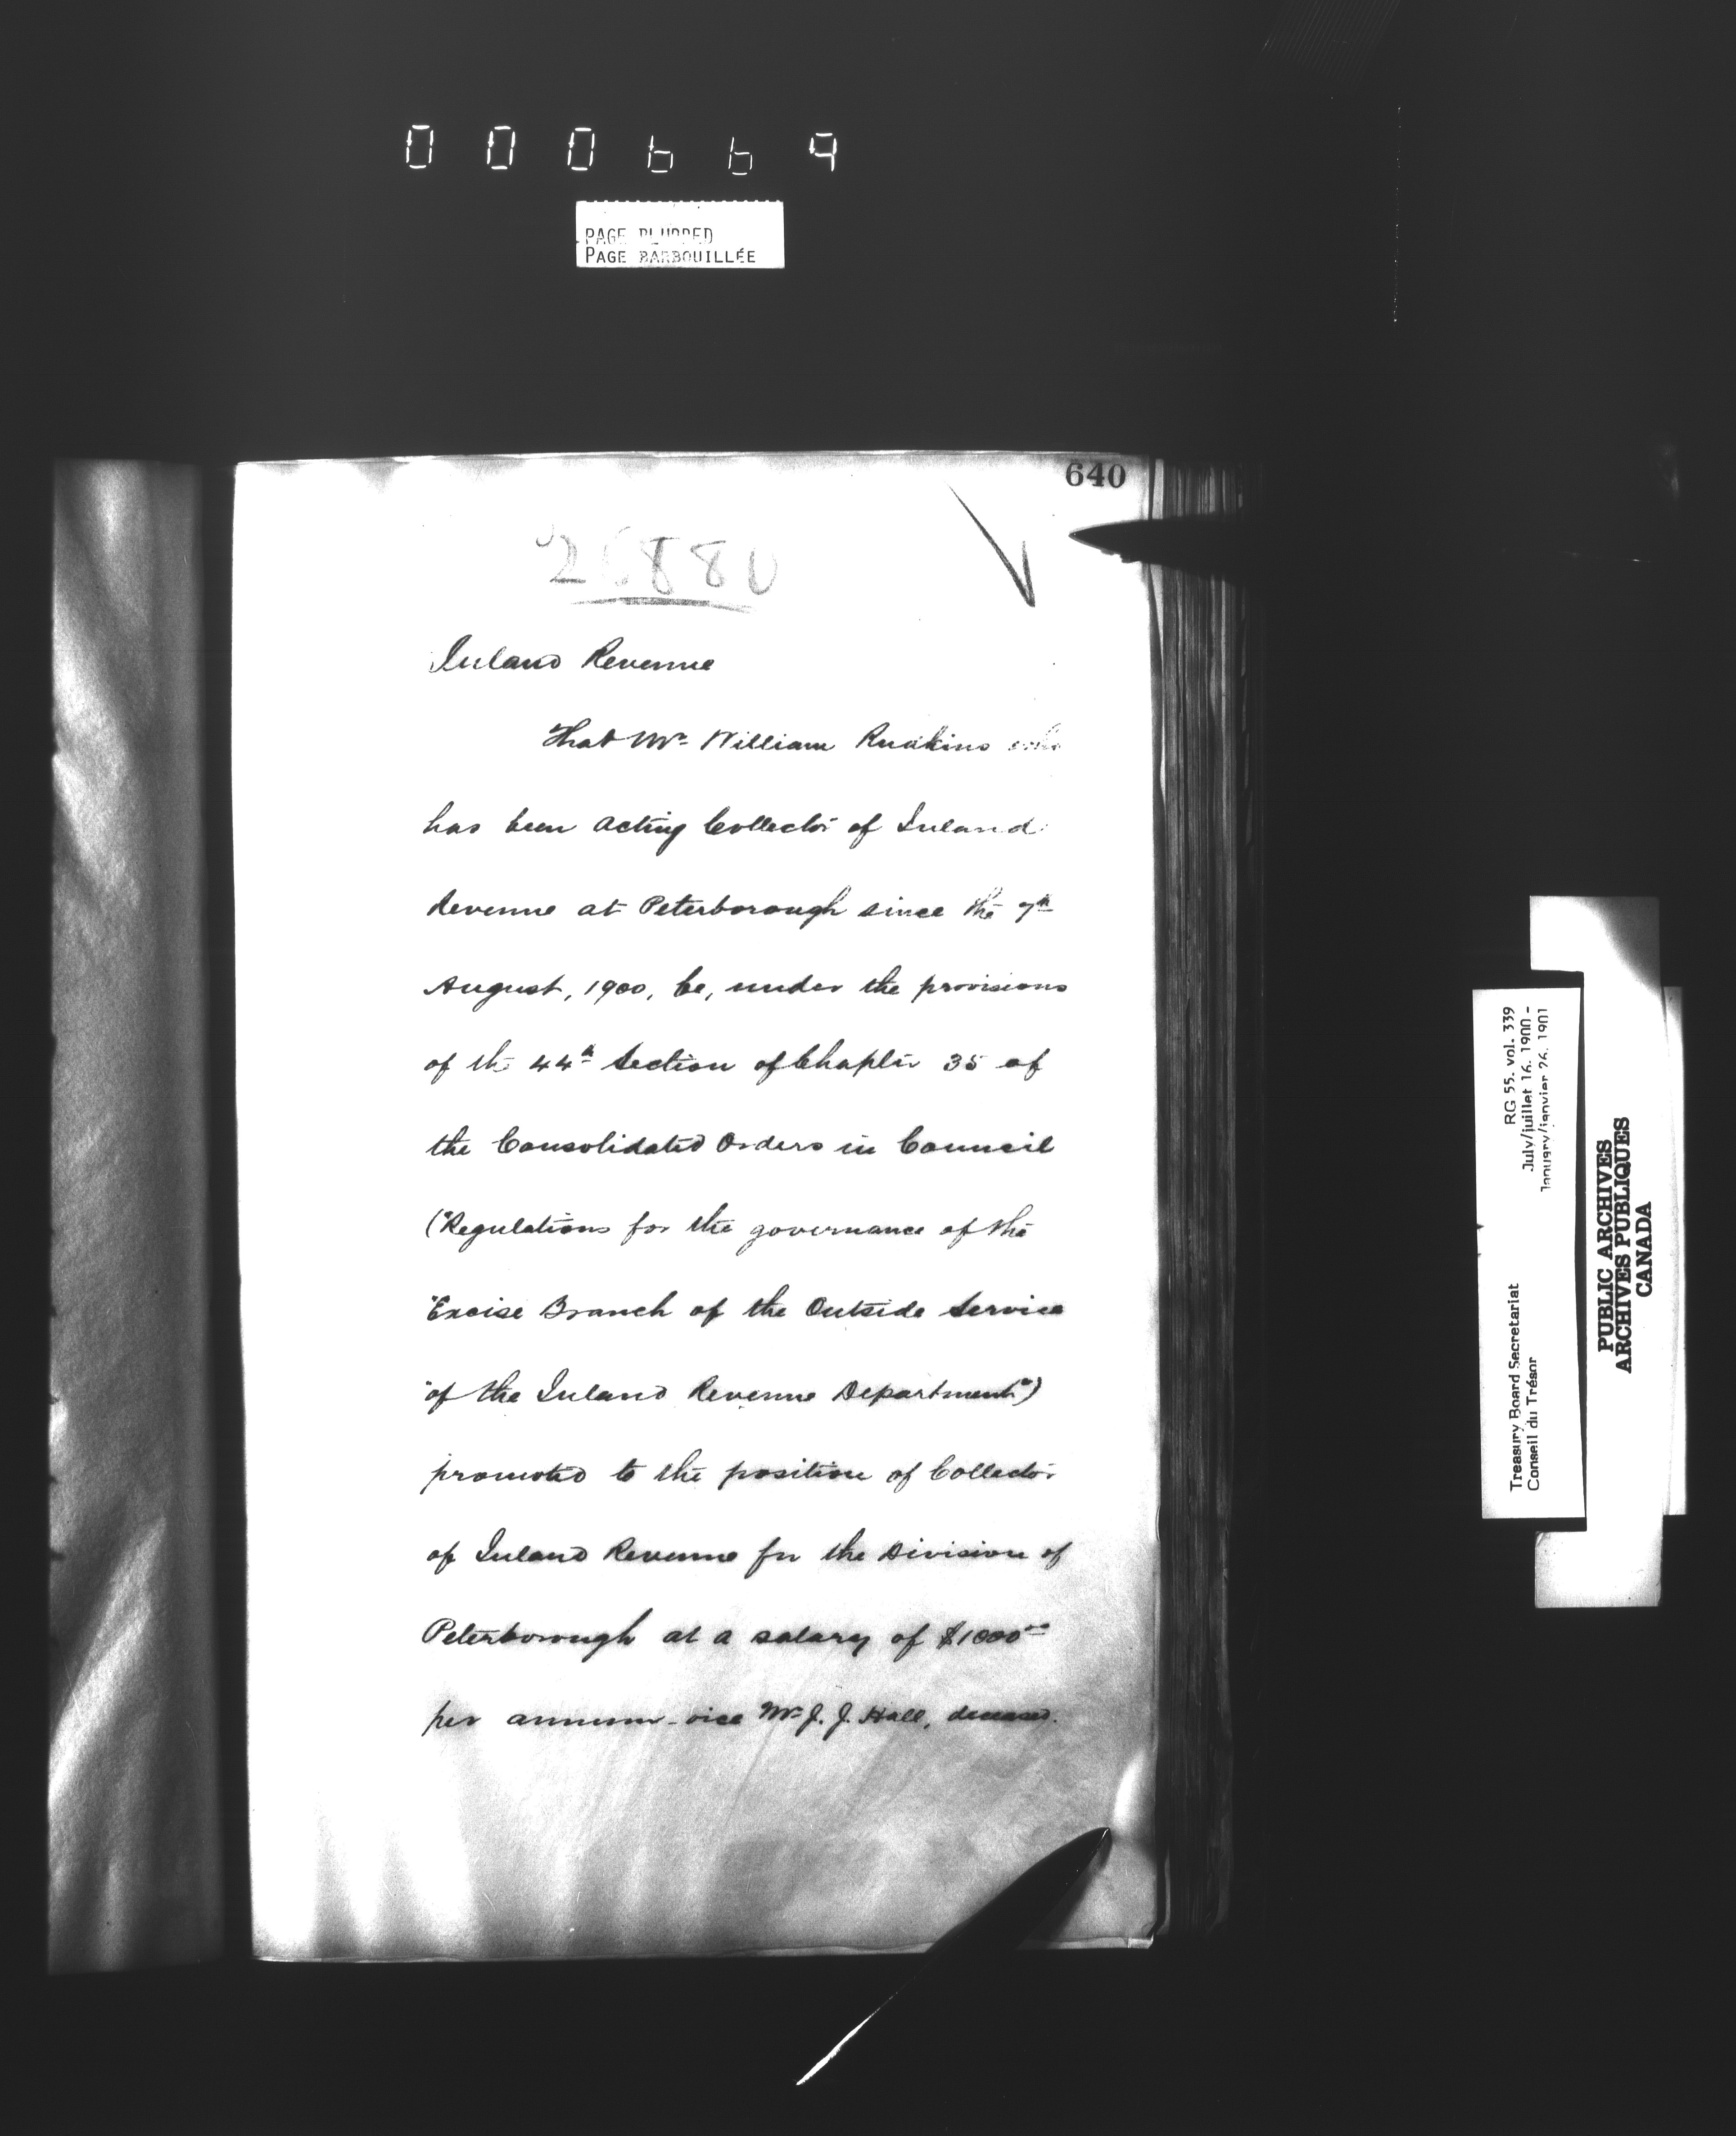 000669
PAGE BLURRED
PAGE BARBOUILLÉE
640
26880
Inland Revenue
That Mr William who
has been acting Collector of Inland
Revenue at Peterborough since the 7th
August, 1900, be, under the provisions
of the 44th Section of Chapter 35 of
the Consolidated Orders in Council
("Regulations for the governance of the
"Excise Branch of the Outside Service
"of the Inland Revenue Department")
promoted to the position of Collector
of Inland Revenue for the Division of
Peterborough at a salary of $1000.00
per annum - vice Mr J. J. Hall, deceased.
RG 55, vol. 339
July/juillet 16, 1900 -
January/janvier 26, 1901
Treasury Board Secretariat
Conseil du Trésor
PUBLIC ARCHIVES
ARCHIVES PUBLIQUES
CANADA